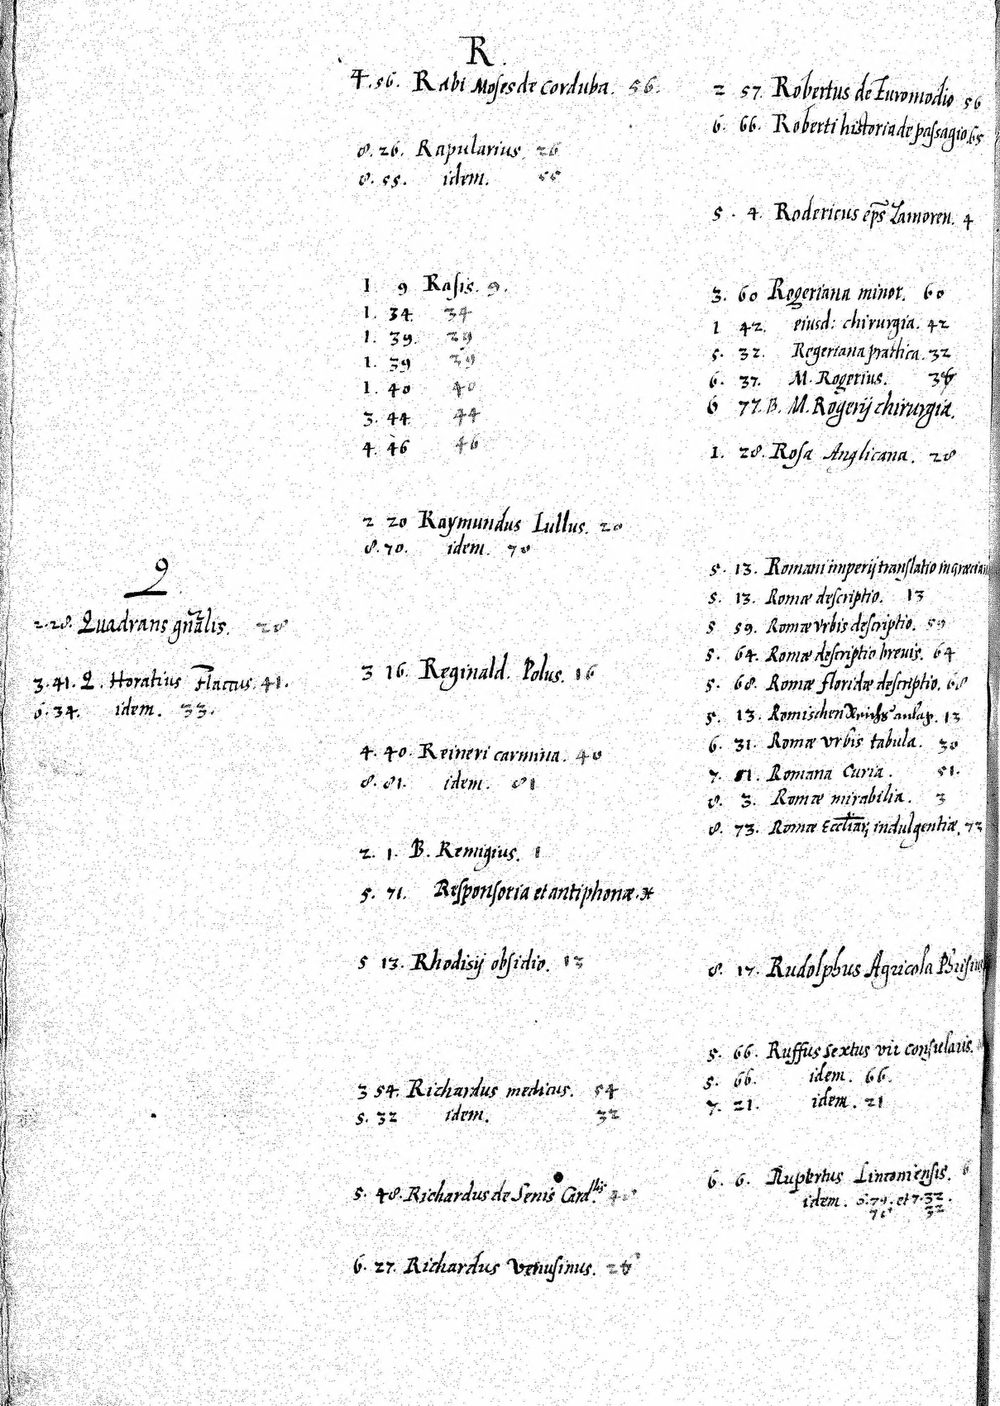 Q
2.28. Quadrans gnalis. 28
3.41. Q. Horatius Flaccus. 41.
6.34. idem. 33.
R.
4.56. Rabi Moses de Corduba. 56.
8.26. Rapularius. 26
8.55. idem. 55
1 9 Rasis. 9.
1. 34. 34
1. 39. 29
1. 39 39
1. 40 40
3. 44 44
4. 46 46
2 20 Raymundus Lullus. 20
8.70. idem. 70
3 16. Reginald. Polus. 16
4. 40. Reineri carmina. 40
8. 81. idem. 81
2. 1. B. Remigius. 1
5. 71. Responsoria et antiphonæ.
5 13. Rhodisij obsidio. 13
3 54. Richardus medicus. 54
5. 32 idem. 32
5. 48. Richardus de Senis Cardlis 48
6. 27. Richardus Venusinus. 26
2 57. Robertus de Euromodio 56
6. 66. Roberti historia de passagio. 65
5. 4. Rodericus eps Zamoren. 4
3. 60 Rogeriana minor. 60
1 42. eiusd: chirurgia. 42
5. 32. Rogeriana pratica. 32
6. 37. M. Rogerius. 36
6 77. B. M. Rogerij chirurgia.
1. 28. Rosa Anglicana. 28
5. 13. Romani imperij translatio in græcian
5. 13. Romæ descriptio. 13
5 59. Romæ vrbis descriptio. 59
5. 64. Romæ descriptio brevis. 64
5. 68. Romæ floridæ descriptio. 68
5. 13. Romischen Reichs anslag. 13
6. 31. Romæ vrbis tabula. 30
7. 81. Romana Curia. 51.
8. 3. Romæ mirabilia. 3
8. 73. Romæ Eccliar. indulgentiæ. 73
8. 17. Rudolphus Agricola Phrisius
5. 66. Ruffus Sextus vir consularis.
5. 66. idem. 66.
7. 21. idem. 21
6. 6. Rupertus Linconiensis. 6
idem. 6.79. et 7.32.
78 32